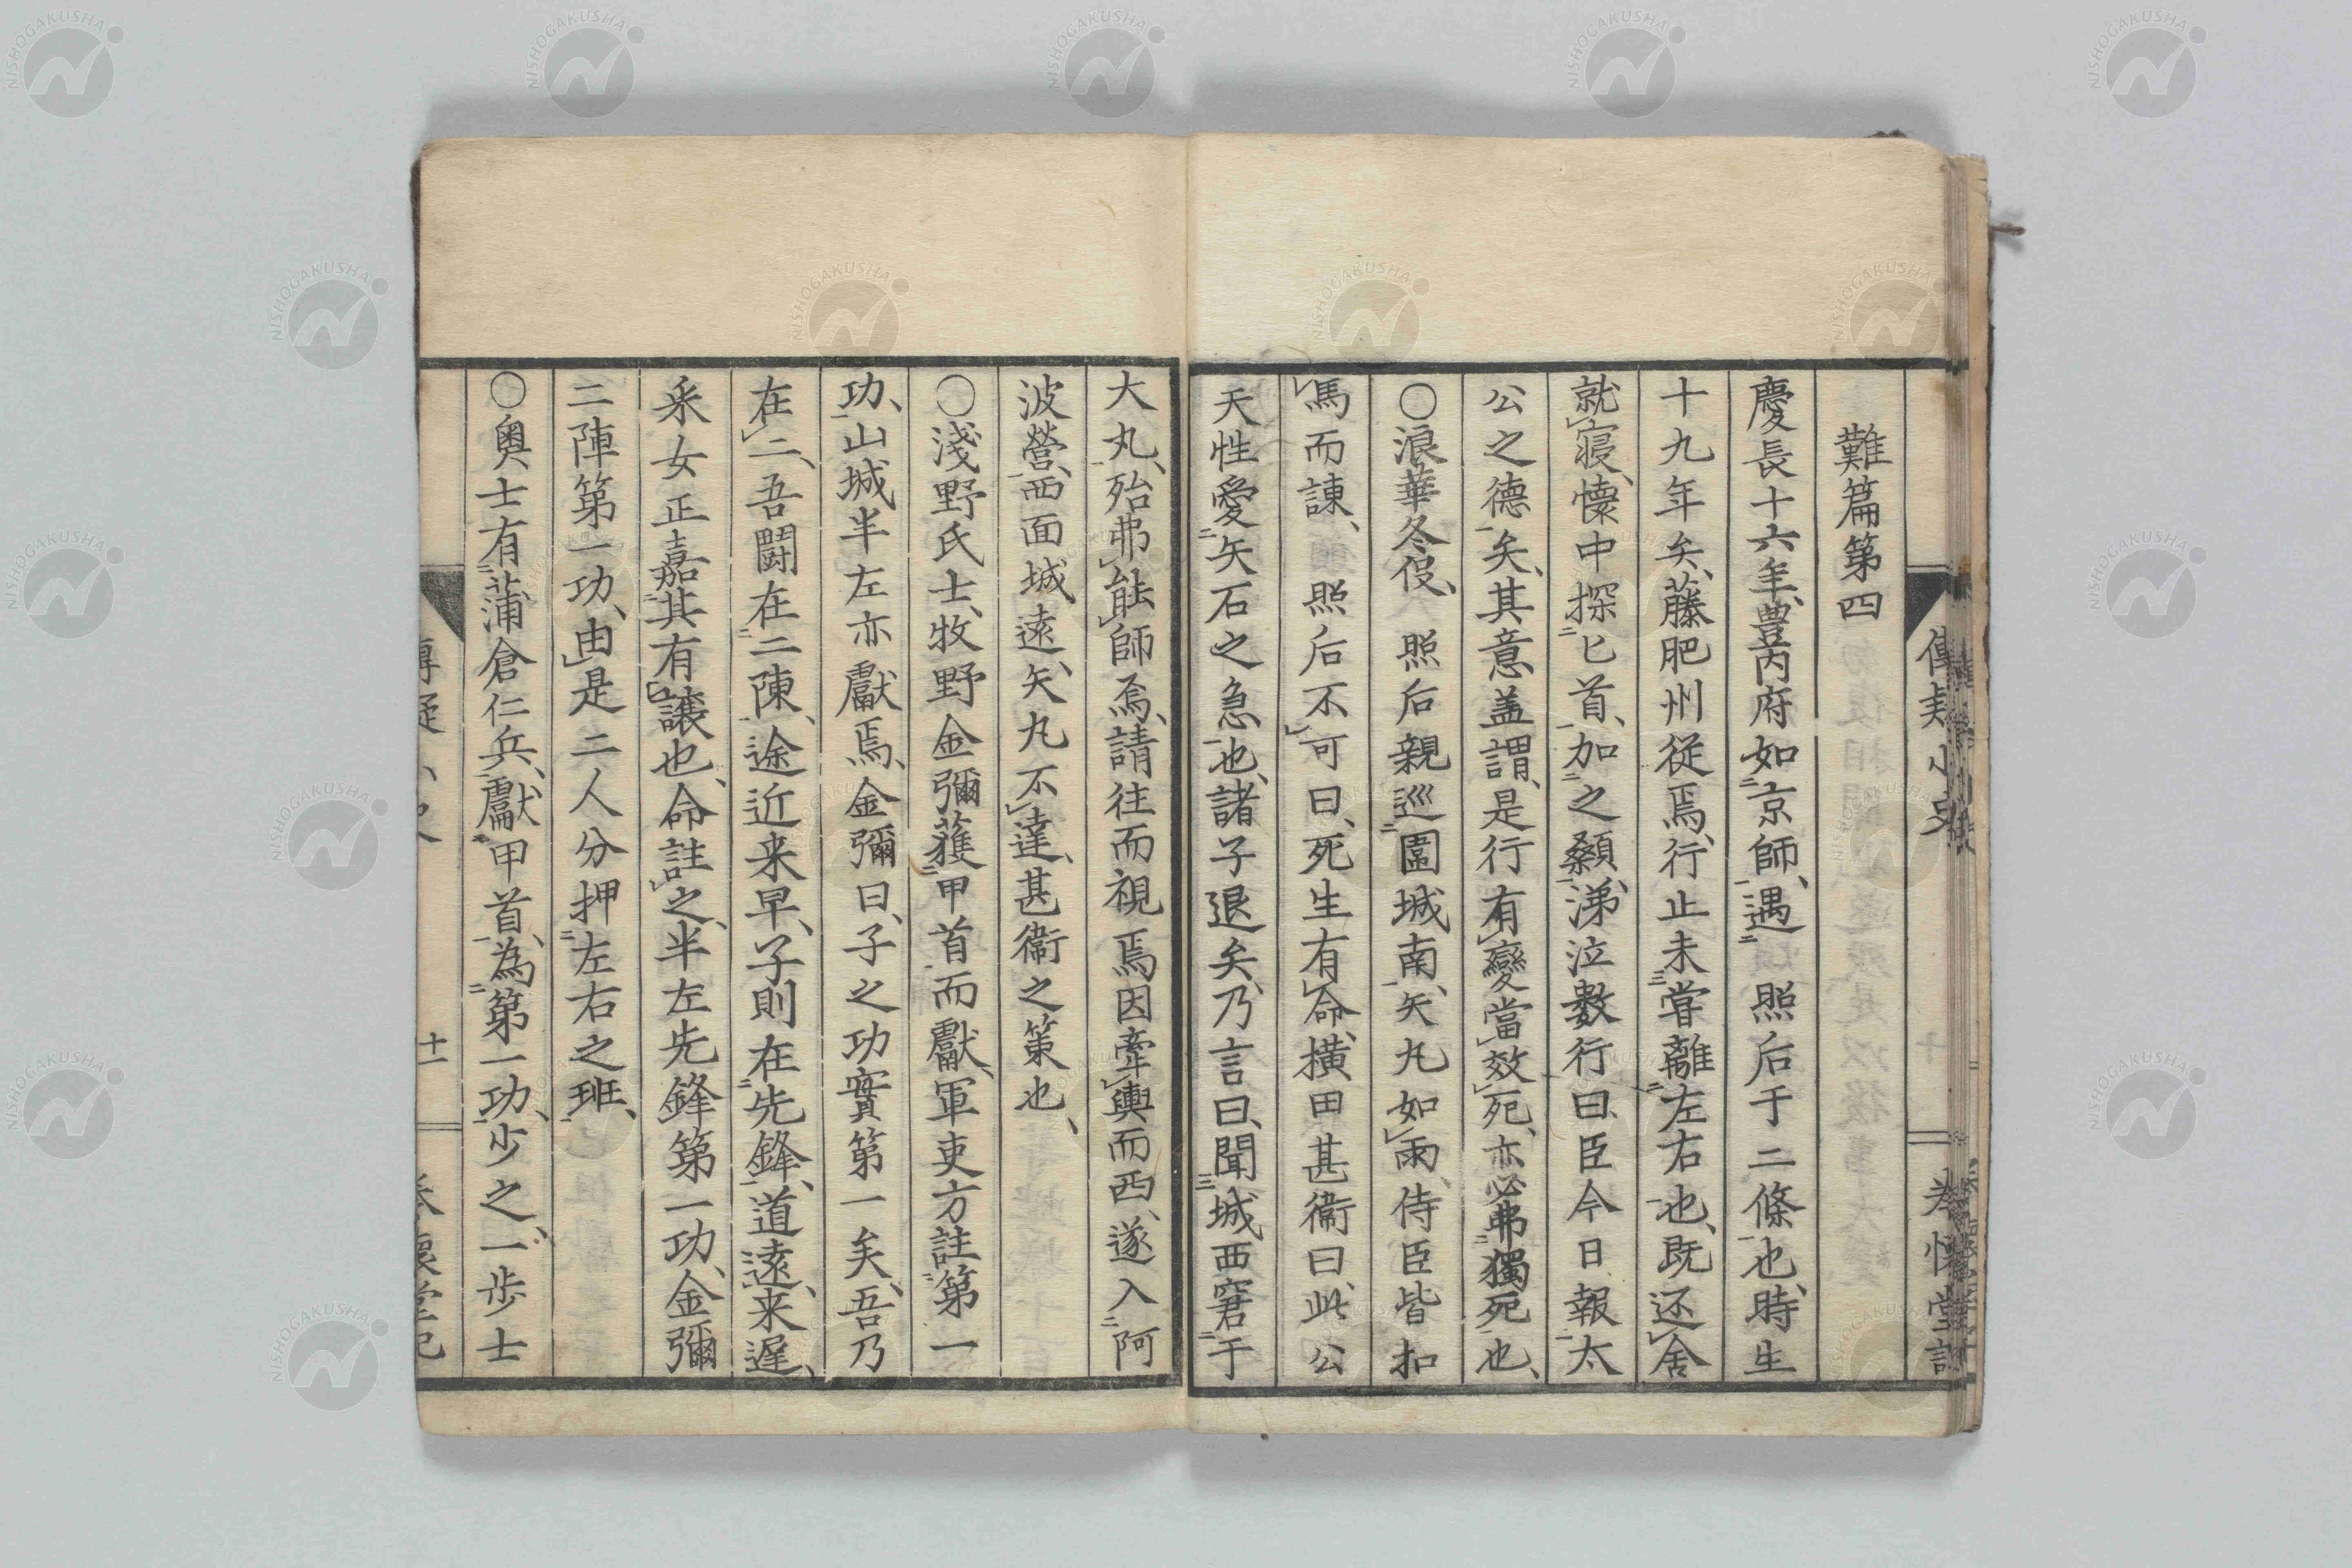 難篇第四
慶長十六年、豊内府如京師、遇　照后于二條也、時生
十九年矣、藤肥州從焉、行止未嘗離左右也、既还舍
就寢、懐中探匕首、加之顙、涕泣数行曰、臣今日報太
公之德矣、其意盖謂、是行有變當效死、亦必弗獨死也、
〇浪華冬役、　照后親巡圍城南、矢丸如雨、侍臣皆扣
馬而諌、　照后不可曰、死生有命、横田甚衞曰、此公
天性愛矢石之急也、諸子退矣、乃言曰、聞城西窘于
大丸、殆弗能師焉、請往而視焉因牽輿而西、遂入阿
波營、西面城遠、矢丸不達、甚衞之策也、
〇淺野氏士、牧野金彌獲甲首而獻、軍吏方註第一
功、山城半左亦獻焉、金彌曰、子之功實第一矣、吾乃
在二、吾鬪在二陳、途近来早、子則在先鋒、道遠、来遲、
采女正嘉其有譲也、命註之、半左先鋒第一功、金彌
二陣第一功、由是二人分押左右之班、
〇奥士有蒲倉仁兵、獻甲首、為第一功、少之、一歩士
十一
懐堂記
NISHOGAKUSHA